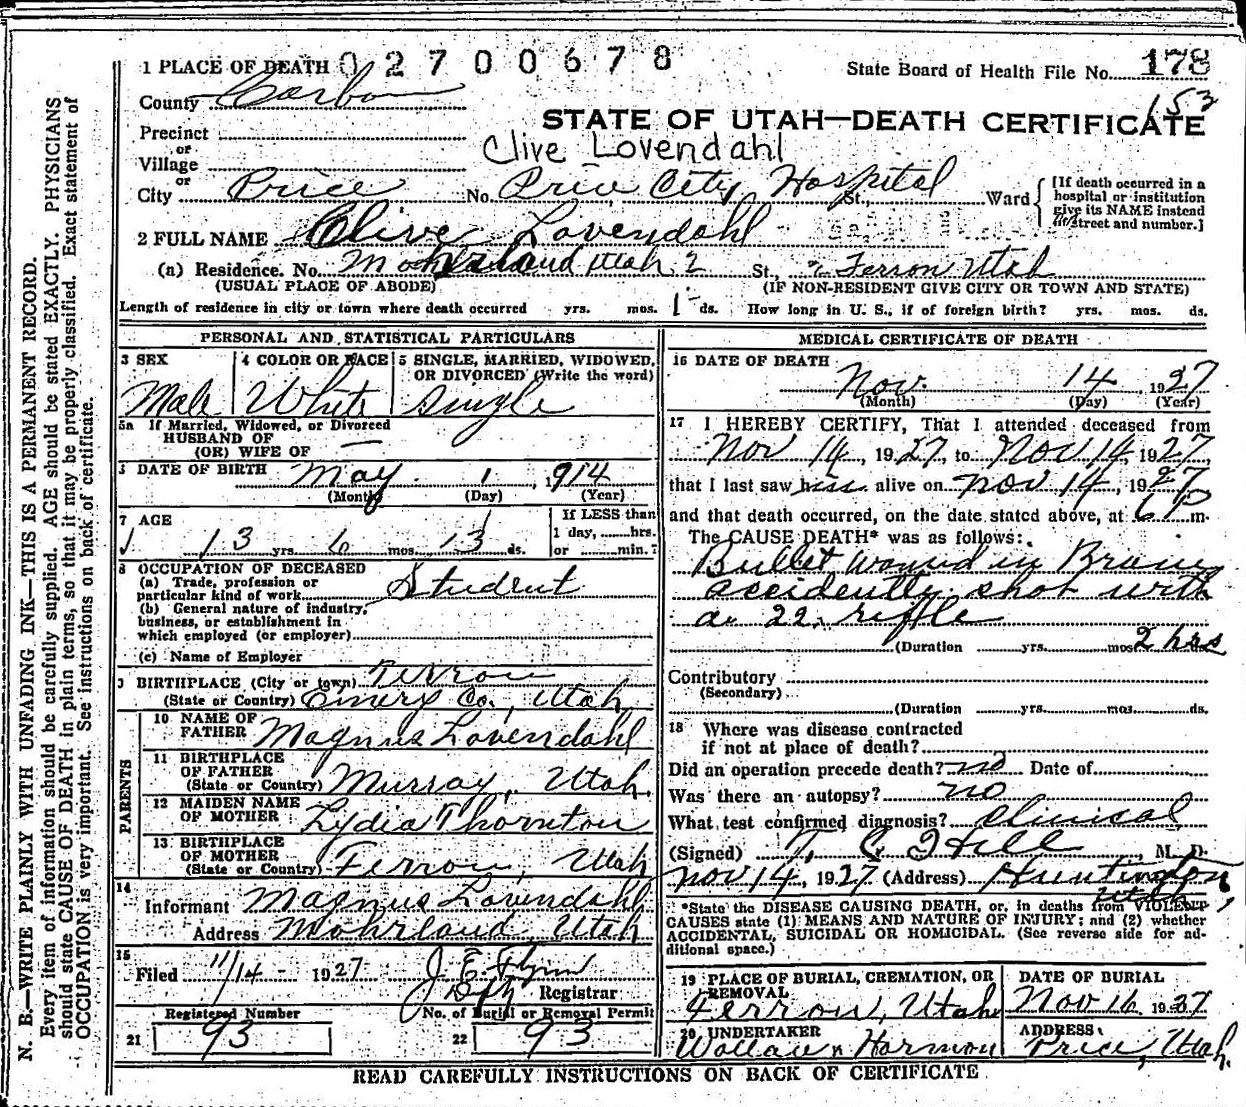 1 PLACE OF DEATH 02700678 State Board of Health File No. 178
County Carbon 153
STATE OF UTAH—DEATH CERTIFICATE
Precinct
or
Clive Lovendahl
Village
or
City Price No. Price City Hospital St., Ward
[If death occurred in a hospital or institution give its NAME instead street and number.]
2 FULL NAME Clive Lovendahl
(a) Residence. No. Mohrland Utah St., Ferron Utah
(USUAL PLACE OF ABODE) (IF NON-RESIDENT GIVE CITY OR TOWN AND STATE)
Length of residence in city or town where death occurred yrs. mos. 1 ds. How long in U. S., if of foreign birth? yrs. mos. ds.
PERSONAL AND STATISTICAL PARTICULARS
3 SEX 4 COLOR OR RACE 5 SINGLE, MARRIED, WIDOWED,
OR DIVORCED (Write the word)
Male White Single
5a If Married, Widowed, or Divorced
HUSBAND OF
(OR) WIFE OF —
DATE OF BIRTH May 1, 1914
(Month) (Day) (Year)
7 AGE If LESS than
1 day, hrs.
13 yrs. 6 mos. 13 ds. or min.?
8 OCCUPATION OF DECEASED
(a) Trade, profession or
particular kind of work Student
(b) General nature of industry,
business, or establishment in
which employed (or employer)
(c) Name of Employer
BIRTHPLACE (City or town) Ferron
(State or Country) Emery Co., Utah
PARENTS
10 NAME OF
FATHER Magnus Lovendahl
11 BIRTHPLACE
OF FATHER
(State or Country) Murray, Utah.
12 MAIDEN NAME
OF MOTHER Lydia Thornton
13 BIRTHPLACE
OF MOTHER
(State or Country) Ferron, Utah
14
Informant Magnus Lovendahl
Address Mohrland, Utah
15
Filed 11/14 - 1927 J. E. Flynn
Dpty Registrar
Registered Number No. of Burial or Removal Permit
21 93 22 93
MEDICAL CERTIFICATE OF DEATH
16 DATE OF DEATH
Nov. 14, 1927
(Month) (Day) (Year)
17 I HEREBY CERTIFY, That I attended deceased from
Nov 14, 1927, to Nov 14, 1927,
that I last saw him alive on Nov 14, 1927
and that death occurred, on the date stated above, at 6 P m.
The CAUSE DEATH* was as follows:
Bullet wound in Brain,
accidently shot with
a 22 rifle
(Duration yrs. mos. 2 hrs
Contributory
(Secondary)
(Duration yrs. mos. ds.
18 Where was disease contracted
if not at place of death?
Did an operation precede death? no Date of
Was there an autopsy? no
What test confirmed diagnosis? Clinical
(Signed) T. C. Hill M. D.
Nov 14, 1927 (Address) Huntington,
Utah
*State the DISEASE CAUSING DEATH, or, in deaths from VIOLENT
CAUSES state (1) MEANS AND NATURE OF INJURY; and (2) whether
ACCIDENTAL, SUICIDAL OR HOMICIDAL. (See reverse side for ad-
ditional space.)
19 PLACE OF BURIAL, CREMATION, OR
REMOVAL
Ferron, Utah
DATE OF BURIAL
Nov 16 1927
20 UNDERTAKER
Wallace & Harmon
ADDRESS
Price, Utah.
READ CAREFULLY INSTRUCTIONS ON BACK OF CERTIFICATE
N. B.—WRITE PLAINLY WITH UNFADING INK—THIS IS A PERMANENT RECORD.
Every item of information should be carefully supplied. AGE should be stated EXACTLY. PHYSICIANS
should state CAUSE OF DEATH in plain terms, so that it may be properly classified. Exact statement of
OCCUPATION is very important. See instructions on back of certificate.